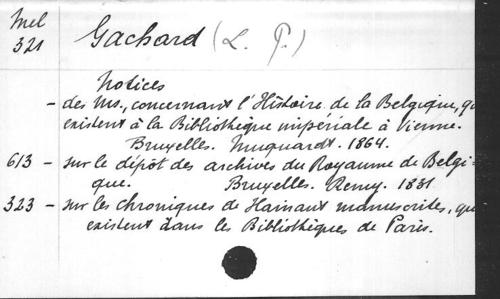 Mel
321
Gachard (L. P.)
Notices
- des Ms., concernant l'Histoire de la Belgique, qu
existent à la Bibliothèque impériale à Vienne.
Bruxelles. Muquardt. 1864.
613 - sur le dépôt des archives du Royaume de Belgi=
que. Bruxelles. Remy. 1831
323 - sur les chroniques de Hainaut manuscrites, qu
existent dans les Bibliothèques de Paris.